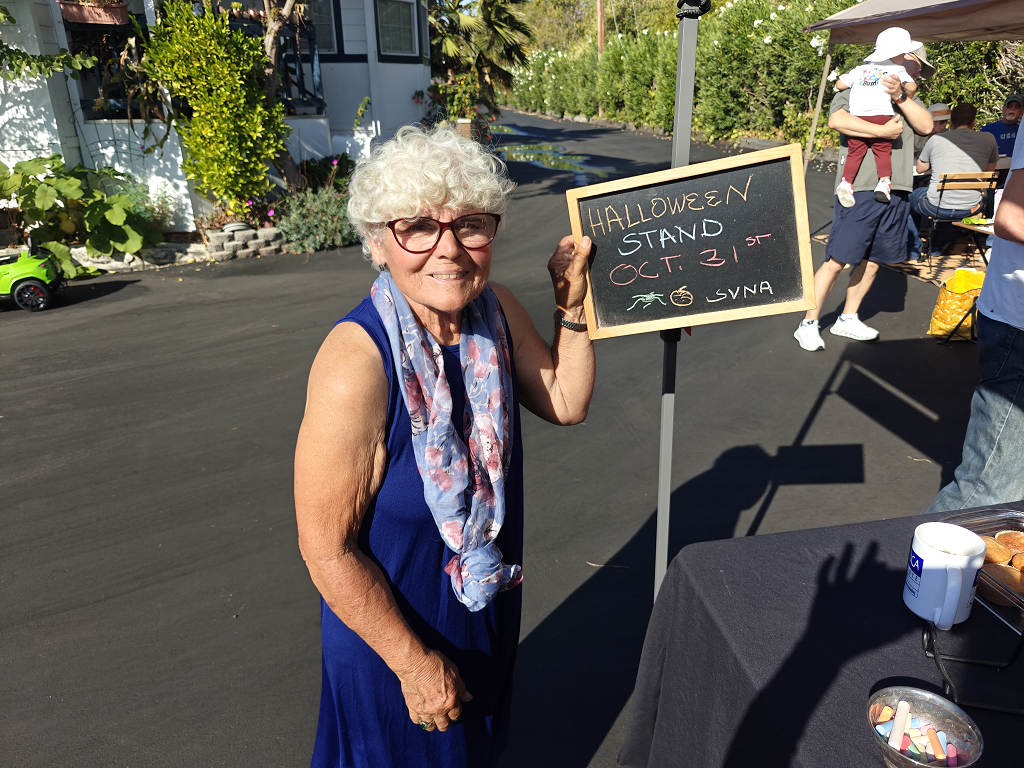 HALLOWEEN
STAND
OCT. 31ST
SVNA